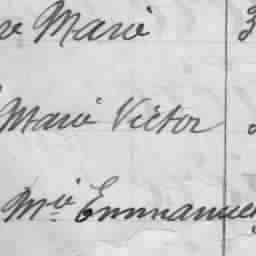 Marie
Marie Victor
Mie Emmanuel